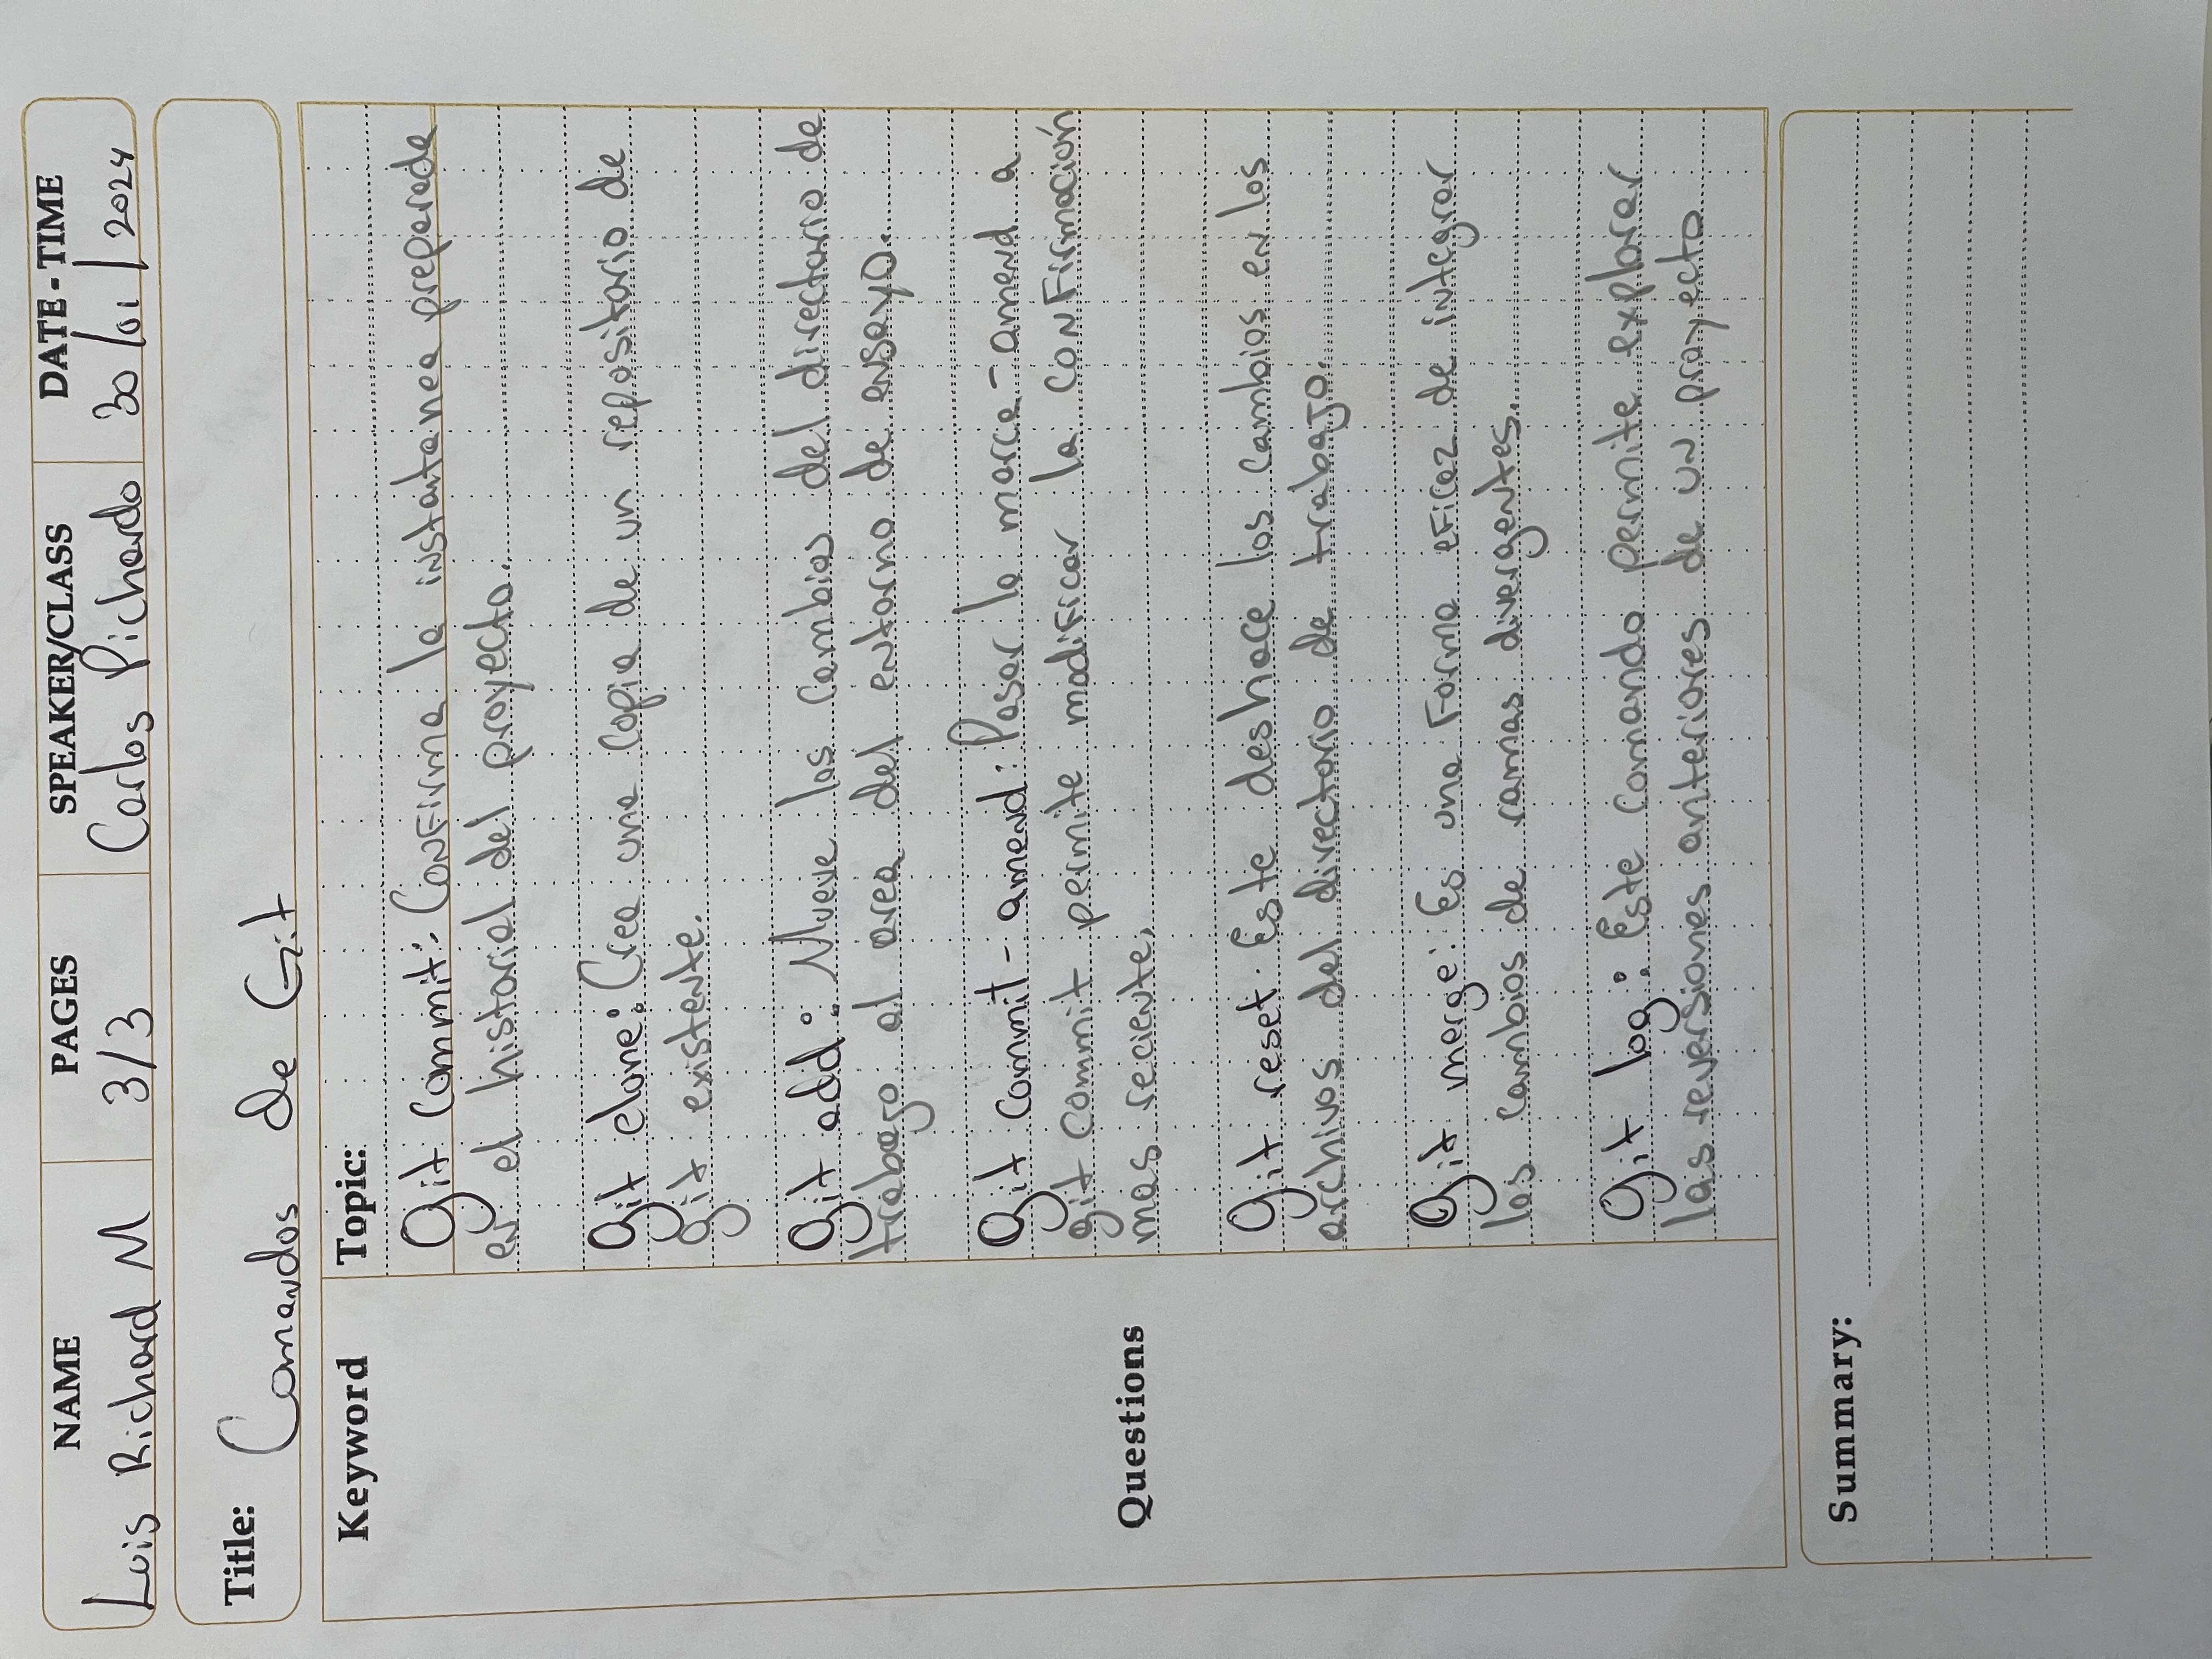 NAME PAGES SPEAKER/CLASS DATE - TIME
Luis Richard M 3/3 Carlos Pichardo 30/01/2024
Title: Comandos de Git
Keyword Topic:
Git commit: Confirma la instantanea preparada
en el historial del proyecto.
Git clone: Crea una copia de un repositorio de
git existente.
Git add: Mueve los cambios del directorio de
trabajo al area del entorno de ensayo.
Git commit - amend: Pasar la marca - amend a
git commit permite modificar la confirmación
Questions mas reciente.
Git reset: Este deshace los cambios en los
archivos del directorio de trabajo.
Git merge: Es una forma eficaz de integrar
los cambios de ramas divergentes.
Git log: Este comando permite explorar
las reversiones anteriores de un proyecto
Summary: